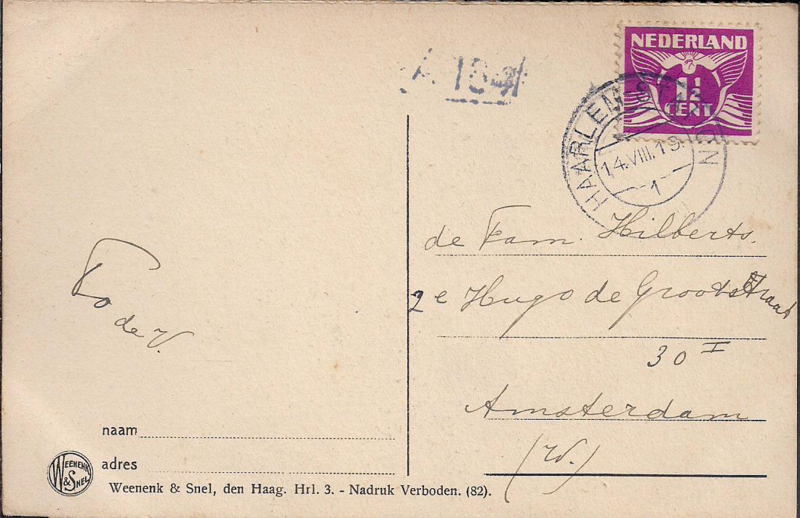 A 184
NEDERLAND
1½
CENT
HAARLEM STATION
14.VIII.19.
1
de Fam. Hilberts.
2e Hugo de Grootstraat
30 I
Amsterdam
(W.)
To de V.
naam
adres
WEENENK
& SNEL
Weenenk & Snel, den Haag. Hrl. 3. - Nadruk Verboden. (82).